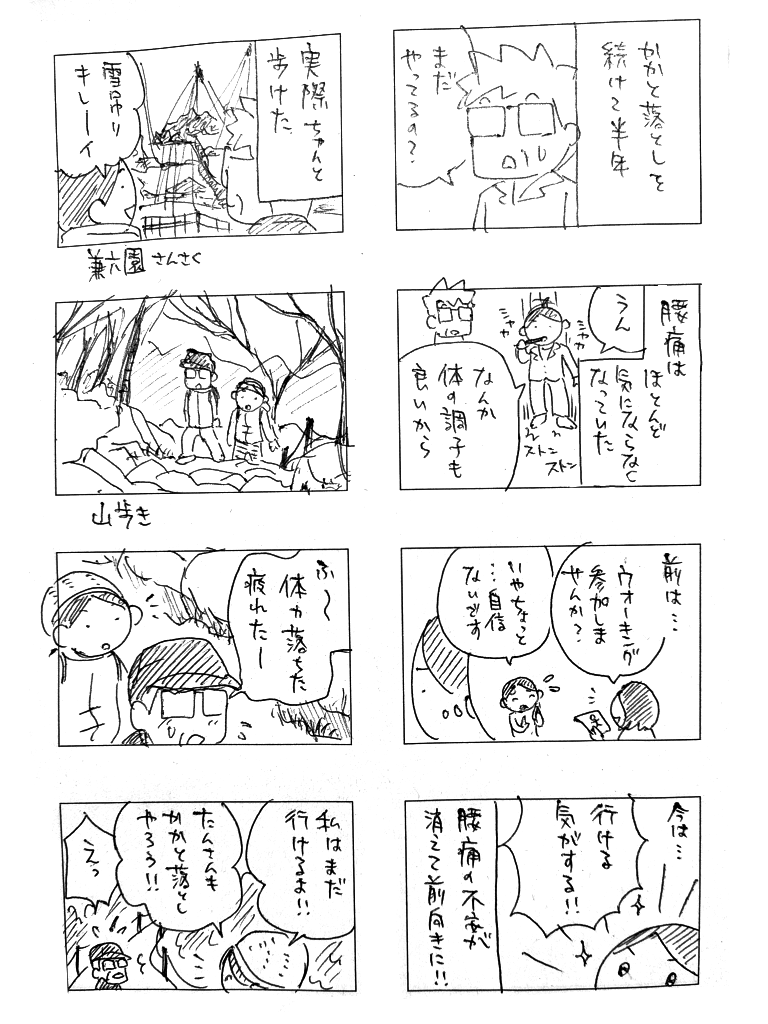 かかと落としを
続けて半年
まだ
やってるの?
腰痛は
ほとんど
気にならなく
なっていた
うん
シャカ
シャカ
ストン
ストン
なんか
体の調子も
良いから
前は…
ウオーキング
参加しま
せんか?
いやちょっと
…自信
ないです
今は…
行ける
気がする!!
腰痛の不安が
消えて前向きに!!
実際ちゃんと
歩けた
雪吊り
キレーイ
兼六園さんさく
山歩き
ふ〜
体力落ちた
疲れたー
私はまだ
行けるよ!!
たんさんも
かかと落とし
やろう!!
えっ